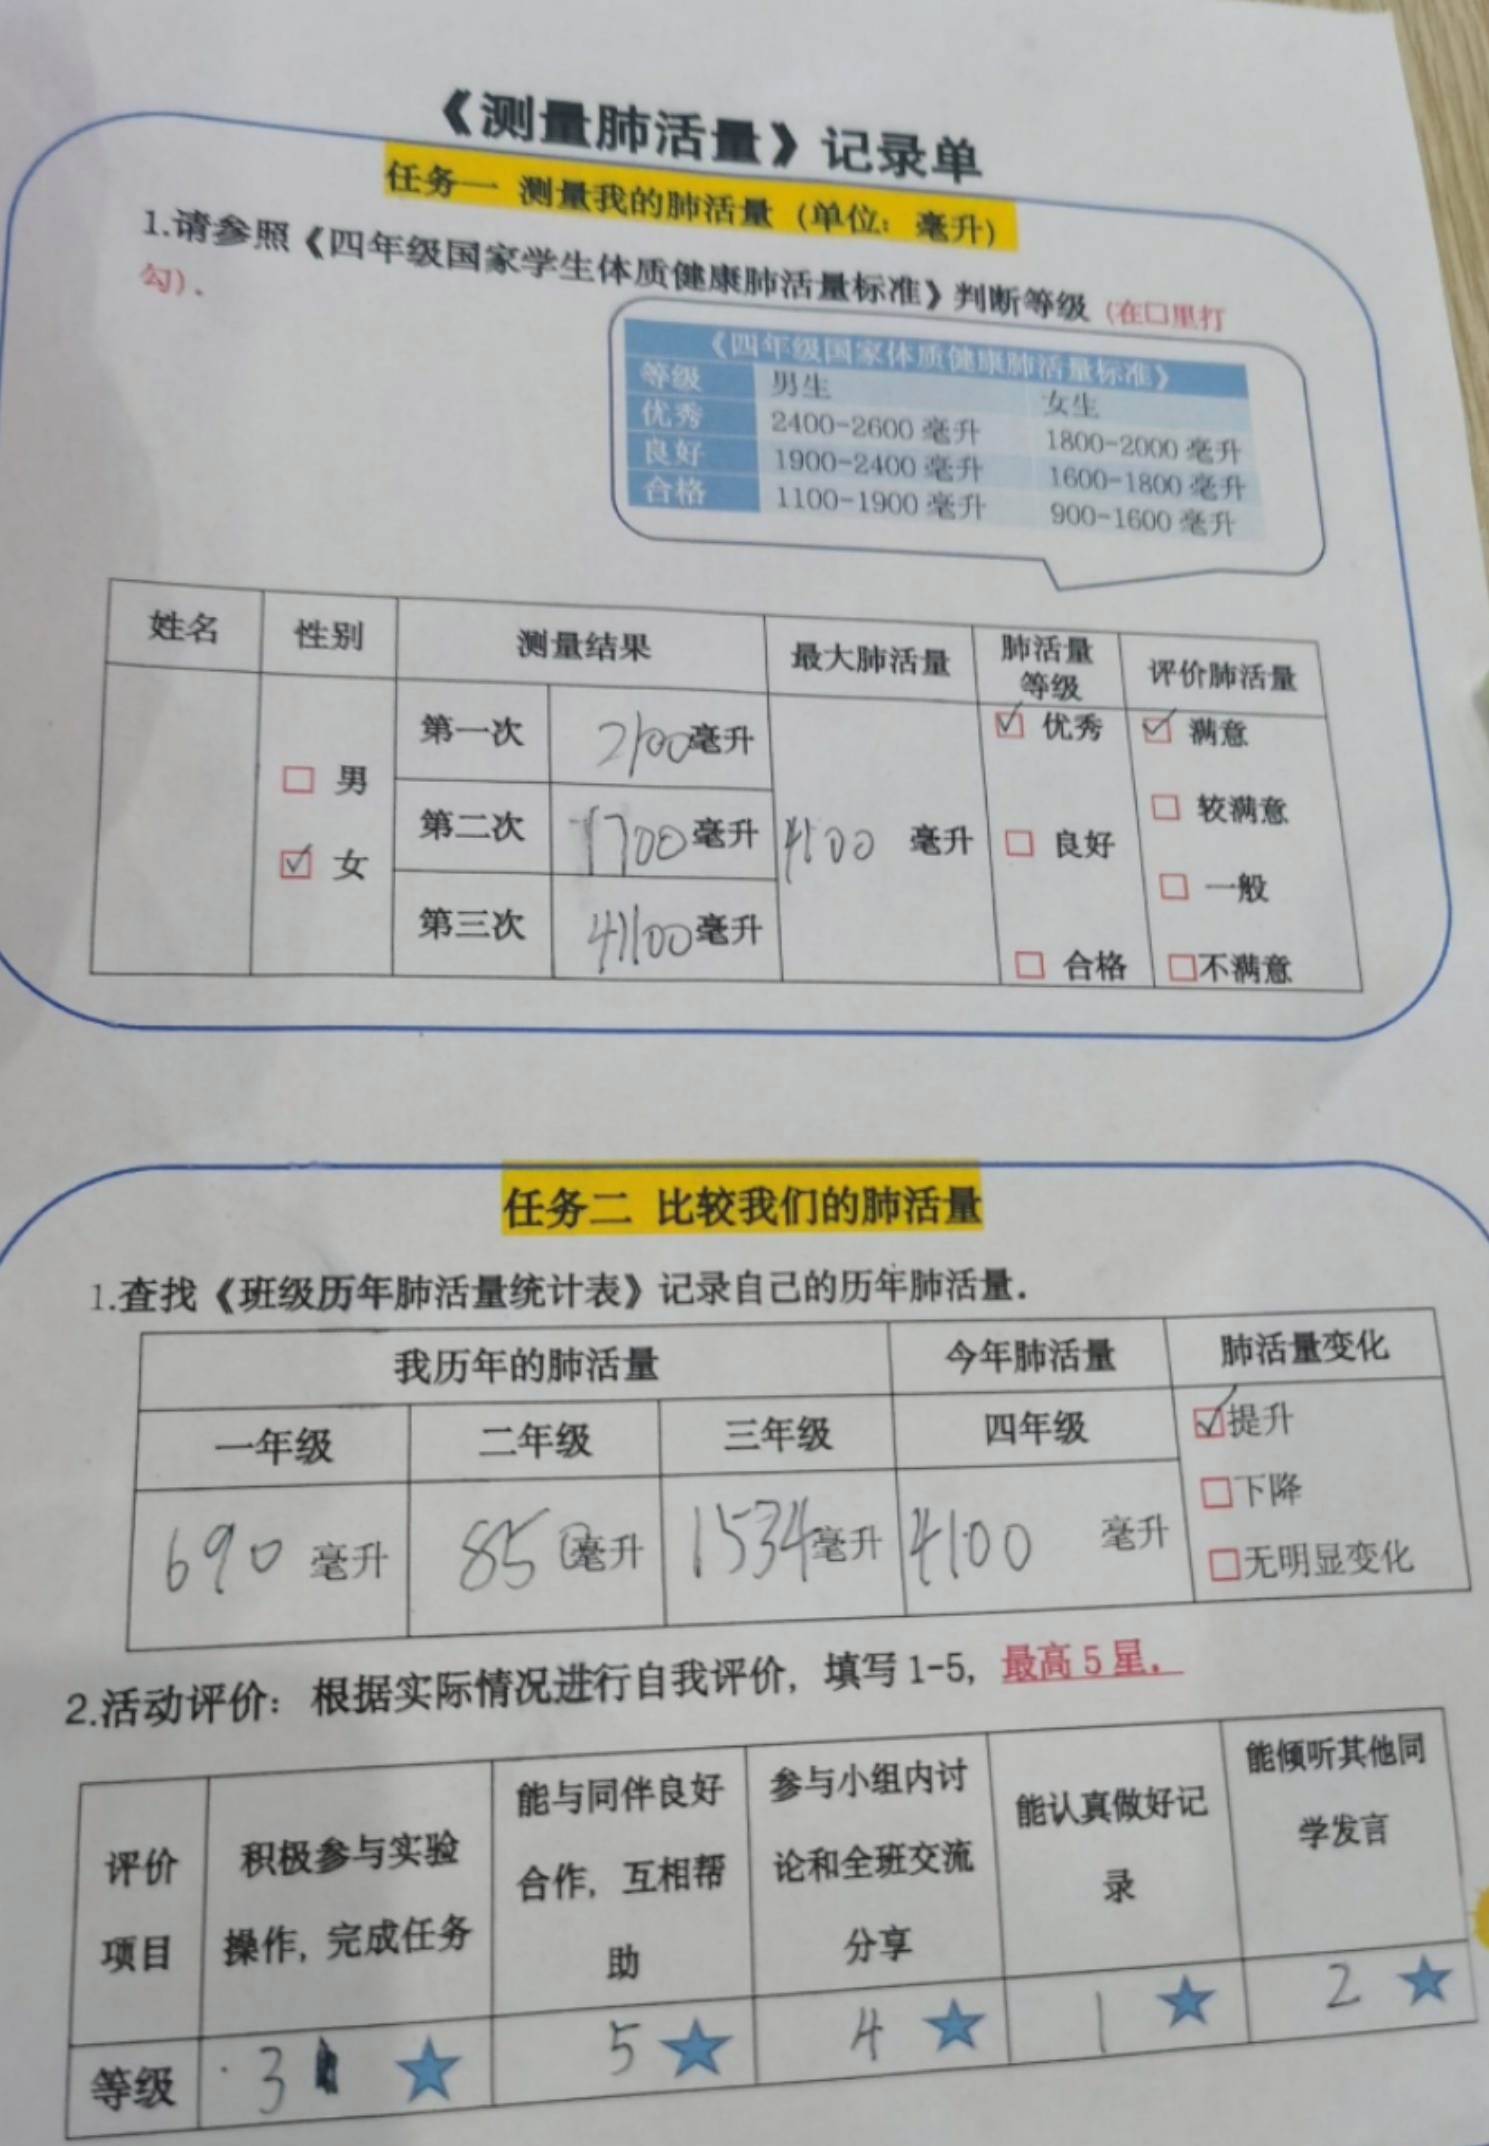 《测量肺活量》记录单
任务一 测量我的肺活量（单位：毫升）
1.请参照《四年级国家学生体质健康肺活量标准》判断等级（在口里打
勾）.
《四年级国家体质健康肺活量标准》
等级 男生 女生
优秀 2400-2600 毫升 1800-2000 毫升
良好 1900-2400 毫升 1600-1800 毫升
合格 1100-1900 毫升 900-1600 毫升
姓名 性别 测量结果 最大肺活量 肺活量等级 评价肺活量
☐ 男
☑ 女
第一次 2100毫升
第二次 1700毫升
第三次 毫升
4100 毫升
☑ 优秀
☐ 良好
☐ 合格
☑ 满意
☐ 较满意
☐ 一般
☐不满意
任务二 比较我们的肺活量
1.查找《班级历年肺活量统计表》记录自己的历年肺活量.
我历年的肺活量 今年肺活量 肺活量变化
一年级 二年级 三年级 四年级
690 毫升 850毫升 1534毫升 4100 毫升
☑提升
☐下降
☐无明显变化
2.活动评价：根据实际情况进行自我评价，填写 1-5，最高 5 星.
评价
项目
积极参与实验
操作，完成任务
能与同伴良好
合作，互相帮
助
参与小组内讨
论和全班交流
分享
能认真做好记
录
能倾听其他同
学发言
等级 3 ★ 5 ★ 4 ★ 1 ★ 2 ★